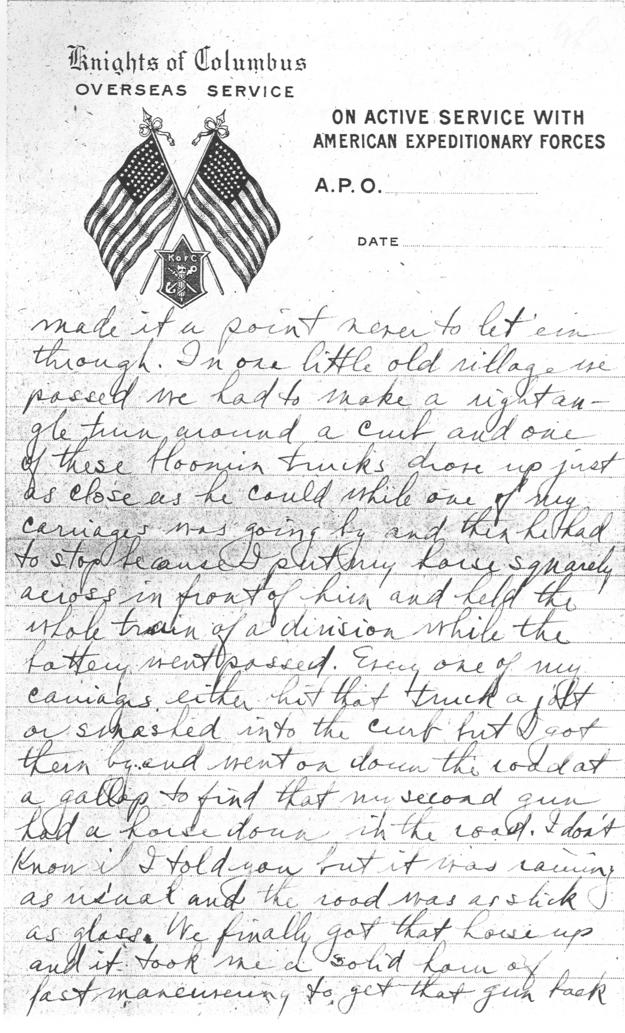 Knights of Columbus
OVERSEAS SERVICE
ON ACTIVE SERVICE WITH
AMERICAN EXPEDITIONARY FORCES
A.P.O.
DATE
K of C
made it a point never to let 'em
through. In one little old village we
passed we had to make a right an-
gle turn around a curb and one
of these trucks drove up just
as close as he could while one of my
carriages was going by and then he had
to stop because I put my horse squarely
across in front of him and held the
whole train of a division while the
battery went passed. Every one of my
carriages either hit that truck a jolt
or smashed into the curb but I got
them by and went on down the road at
a gallop to find that my second gun
had a horse down in the road. I don't
know if I told you but it was raining
as usual and the road was as slick
as glass. We finally got that horse up
and it took me a solid hour of
fast maneuvering to get that gun back